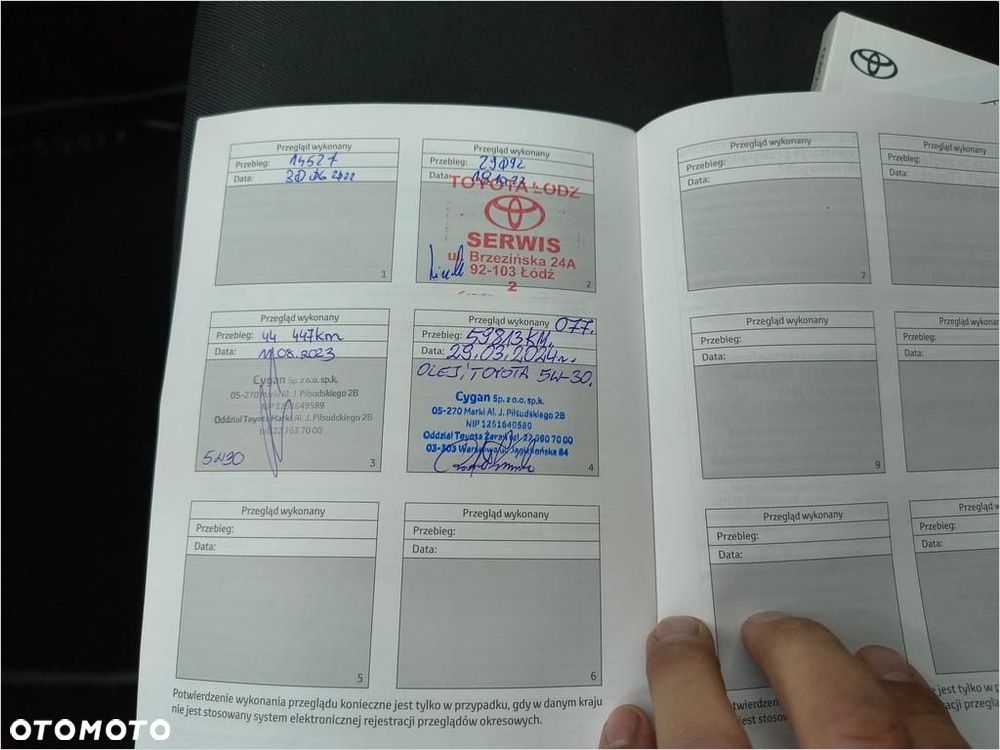 Przegląd wykonany
Przebieg: 14527
Data: 30 06 2022
1
Przegląd wykonany
Przebieg: 29092
Data: 18.10.22
TOYOTA ŁÓDŹ
SERWIS
ul. Brzezińska 24A
92-103 Łódź
2
2
Przegląd wykonany
Przebieg: 44 447km
Data: 11.08.2023
Cygan Sp. z o.o. sp.k.
05-270 Marki Al. J. Piłsudskiego 2B
NIP 1251649589
Oddział Toyota Marki Al. J. Piłsudskiego 2B
tel. 22 763 70 00
5W30
3
Przegląd wykonany 077.
Przebieg: 59813KM.
Data: 29.03.2024r.
OLEJ, TOYOTA 5W-30.
Cygan Sp. z o. o. sp.k.
05-270 Marki Al. J. Piłsudskiego 2B
NIP 1251649589
Oddział Toyota Żerań tel. 22 390 70 00
03-303 Warszawa ul. Jagiellońska 84
4
Przegląd wykonany
Przebieg:
Data:
5
Przegląd wykonany
Przebieg:
Data:
6
Potwierdzenie wykonania przeglądu konieczne jest tylko w przypadku, gdy w danym kraju
nie jest stosowany system elektronicznej rejestracji przeglądów okresowych.
Przegląd wykonany
Przebieg:
Data:
7
Przegląd wykonany
Przebieg:
Data:
Przegląd wykonany
Przebieg:
Data:
9
Przegląd wykonan
Przebieg:
Data:
Przegląd wykonany
Przebieg:
Data:
Przegląd w
Przebieg:
Data:
jest tylko w p
jest stosow
racji przeglą
OTOMOTO